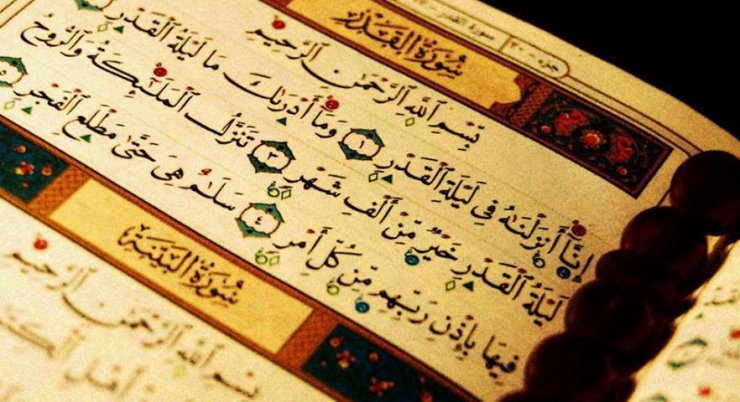 سورة القدر
جزء ٣٠
سُورَةُ القَدۡرِ
بِسۡمِ ٱللَّهِ ٱلرَّحۡمَٰنِ ٱلرَّحِيمِ
إِنَّآ أَنزَلۡنَٰهُ فِي لَيۡلَةِ ٱلۡقَدۡرِ ١ وَمَآ أَدۡرَىٰكَ مَا لَيۡلَةُ ٱلۡقَدۡرِ ٢
لَيۡلَةُ ٱلۡقَدۡرِ خَيۡرٞ مِّنۡ أَلۡفِ شَهۡرٖ ٣ تَنَزَّلُ ٱلۡمَلَٰٓئِكَةُ وَٱلرُّوحُ
فِيهَا بِإِذۡنِ رَبِّهِم مِّن كُلِّ أَمۡرٖ ٤ سَلَٰمٌ هِيَ حَتَّىٰ مَطۡلَعِ ٱلۡفَجۡرِ ٥
سُورَةُ البَيِّنَةِ
بِسۡمِ ٱللَّهِ ٱلرَّحۡمَٰنِ ٱلرَّحِيمِ